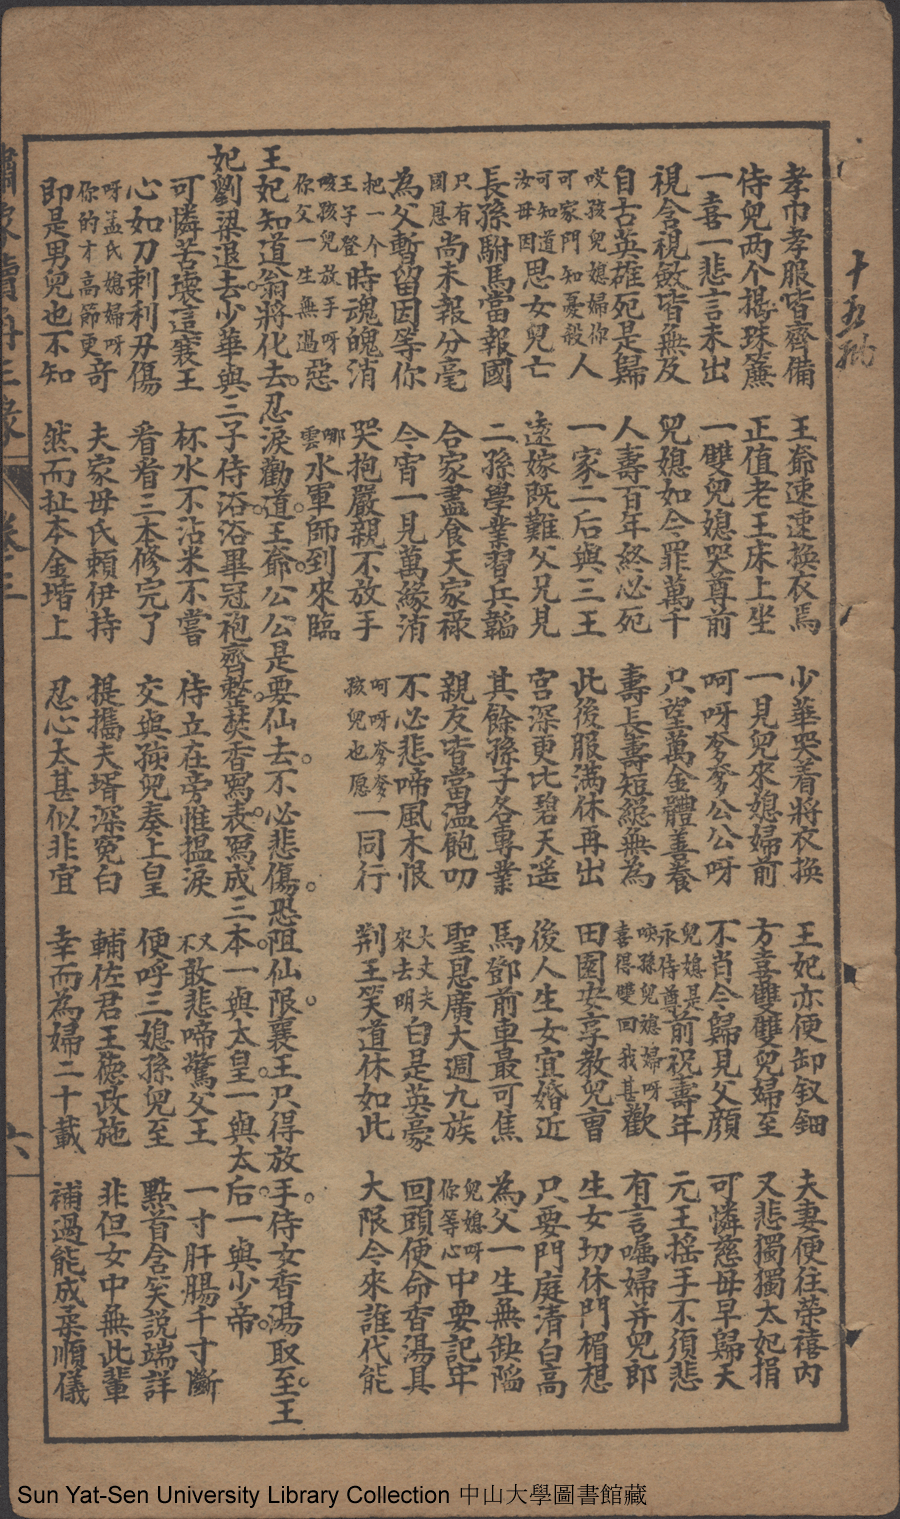 十五翻
孝巾孝服皆齊備 王爺速速換衣焉 少華哭着將衣換 王妃亦便卸釵鈿 夫妻便往榮禧內
侍兒两个揭珠簾 正值老王床上坐 一見兒來媳婦前 方喜雙雙兒婦至 又悲獨獨太妃捐
一喜一悲言未出 一雙兒媳哭尊前 呵呀爹爹公公呀 不肖今歸見父顔 可憐慈母早歸天
視含視斂皆無及 兒媳如今罪萬千 只望萬金體善養 兒媳是永侍尊前祝壽年 元王摇手不須悲
自古英雄死是歸 人壽百年終必死 壽長壽短總無為 唤孫兒媳婦呀喜得雙回我甚歡 有言囑婦并兒郎
哎孩兒媳婦你可家門知憂殺人 一家二后與三王 此後服满休再出 田園安享教兒曹 生女切休門楣想
可知道汝母因思女兒亡 遠嫁既難父兄見 宮深更比碧天遥 後人生女宜婚近 只要門庭清白高
長孫駙馬當報國 二孫學業習兵韜 其餘孫子各專業 馬鄧前車最可焦 為父一生無缺陷
只有國恩尚未報分毫 合家盡食天家禄 親友皆當温飽叨 聖恩廣大週九族 兒媳呀你等心中要記牢
為父暫留因等你 今宵一見萬緣消 不必悲啼風木恨 大丈夫來去明白是英豪 回頭便命香湯具
把一个王子登時魂魄消 哭抱嚴親不放手 呵呀爹爹孩兒也愿一同行 荆王笑道休如此 大限今來誰代能
咳孩兒放手呀你父一生無過惡 哪雲水軍師到來臨
王妃知道翁將化去。忍淚勸道。王爺。公公是要仙去。不必悲傷。恐阻仙限。襄王只得放手。侍女香湯取至。王
妃劉梁退去。少華與三子侍浴。浴畢冠袍齊整。焚香寫表。寫成三本。一與太皇。一與太后。一與少帝。
可憐苦壞這襄王 杯水不沾米不嘗 侍立在旁惟揾淚 又不敢悲啼驚父王 一寸肝腸千寸斷
心如刀刺利刃傷 看看三本修完了 交與孩兒奏上皇 便呼三媳孫兒至 點首含笑說端詳
呀孟氏媳婦呀你的才高節更奇 夫家毋氏賴伊持 提攜夫壻深冤白 輔佐君王德政施 非但女中無此輩
即是男兒也不知 然而扯本金堦上 忍心太甚似非宜 幸而為婦二十載 補過能成柔順儀
繡像續再生緣 卷三 六
Sun Yat-Sen University Library Collection 中山大學圖書館藏